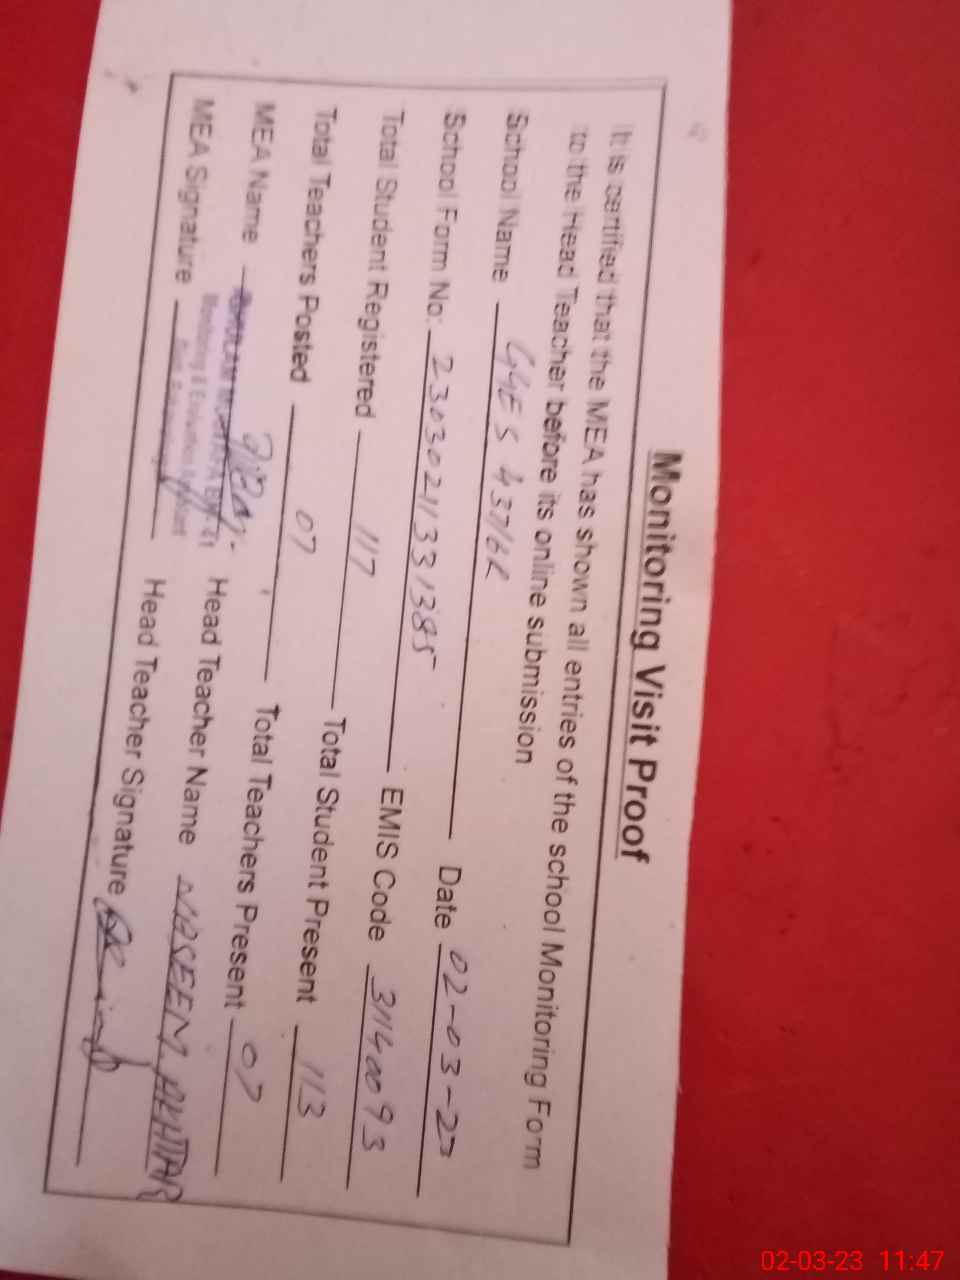 Monitoring Visit Proof
It is certified that the MEA has shown all entries of the school Monitoring Form
to the Head Teacher before its online submission
School Name GGES 437/6R Date 02-03-23
School Form No: 23030211331385 EMIS Code 31140093
Total Student Registered 117 Total Student Present 113
Total Teachers Posted 07 Total Teachers Present 07
MEA Name Head Teacher Name NASEEM AKHTAR
Monitoring & Evaluation
MEA Signature Head Teacher Signature
02-03-23 11:47